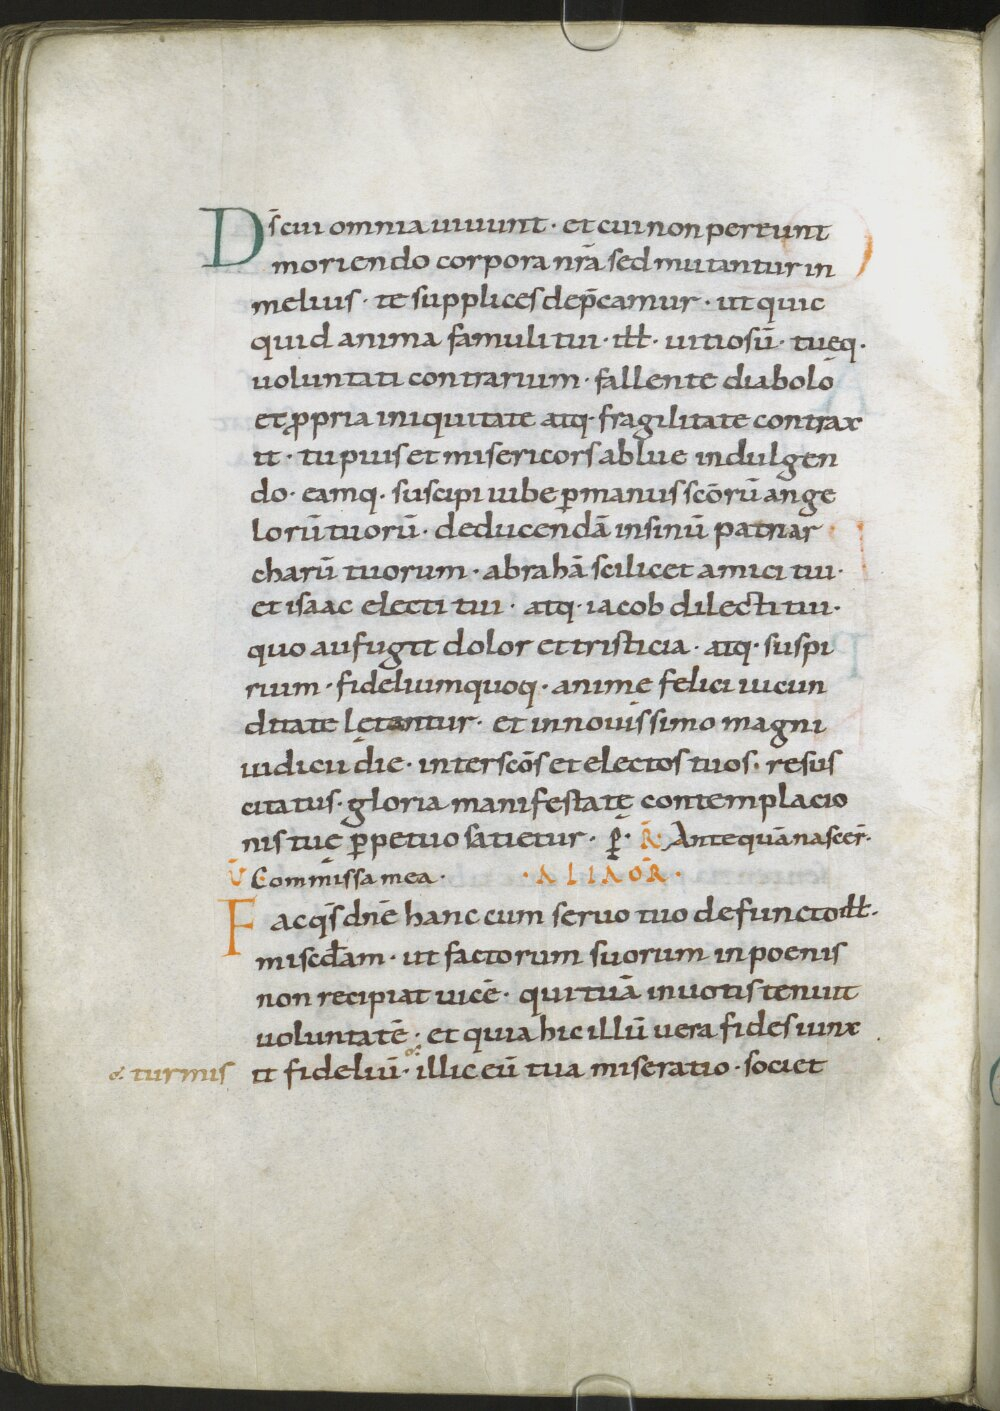 Ds̄ cui omnia uiuunt · et cui non pereunt
moriendo corpora nrā sed mutantur in
melius · te supplices dep̄camur · ut quic
quid anima famuli tui · ill̅ · uitiosū · tuęq ·
uoluntati contrarium · fallente diabolo
et ꝓpria iniquitate atq · fragilitate contrax
it · tu pius et misericors ablue indulgen
do · eamq · suscipi iube ꝑ manus scōrū ange
lorū tuorū · deducendā in sinū patriar
charū tuorum · abrahā scilicet amici tui ·
et isaac electi tui · atq · iacob dilecti tui ·
quo aufugit dolor et tristicia · atq · suspi
rium · fideliumquoq · anime felici iucun
ditate lętantur · et in nouissimo magni
iudicii die · inter scōs et electos tuos · resus
citatus · gloria manifestatę contemplacio
nis tuę ꝑpetuo satietur · ꝑ · R̄ · Antequā nascer̄ ·
V̄ Commissa mea · · ALIA OR̄ ·
Fac qs̄ dnē hanc cum seruo tuo defuncto ill̅ ·
miscd̄am · ut factorum suorum in poenis
non recipiat uicē · qui tuā in uotis tenuit
uoluntatē · et quia hic illū uera fides iunx
it fideliū · illic eū tua miseratio · societ
turmis